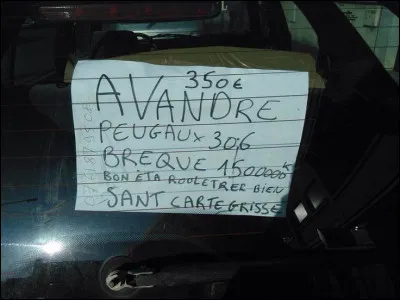 350€
AVANDRE
PEUGAUX 306
BREQUE 1500000K
BON ETA ROULETRER BIEN
SANT CARTEGRISSE